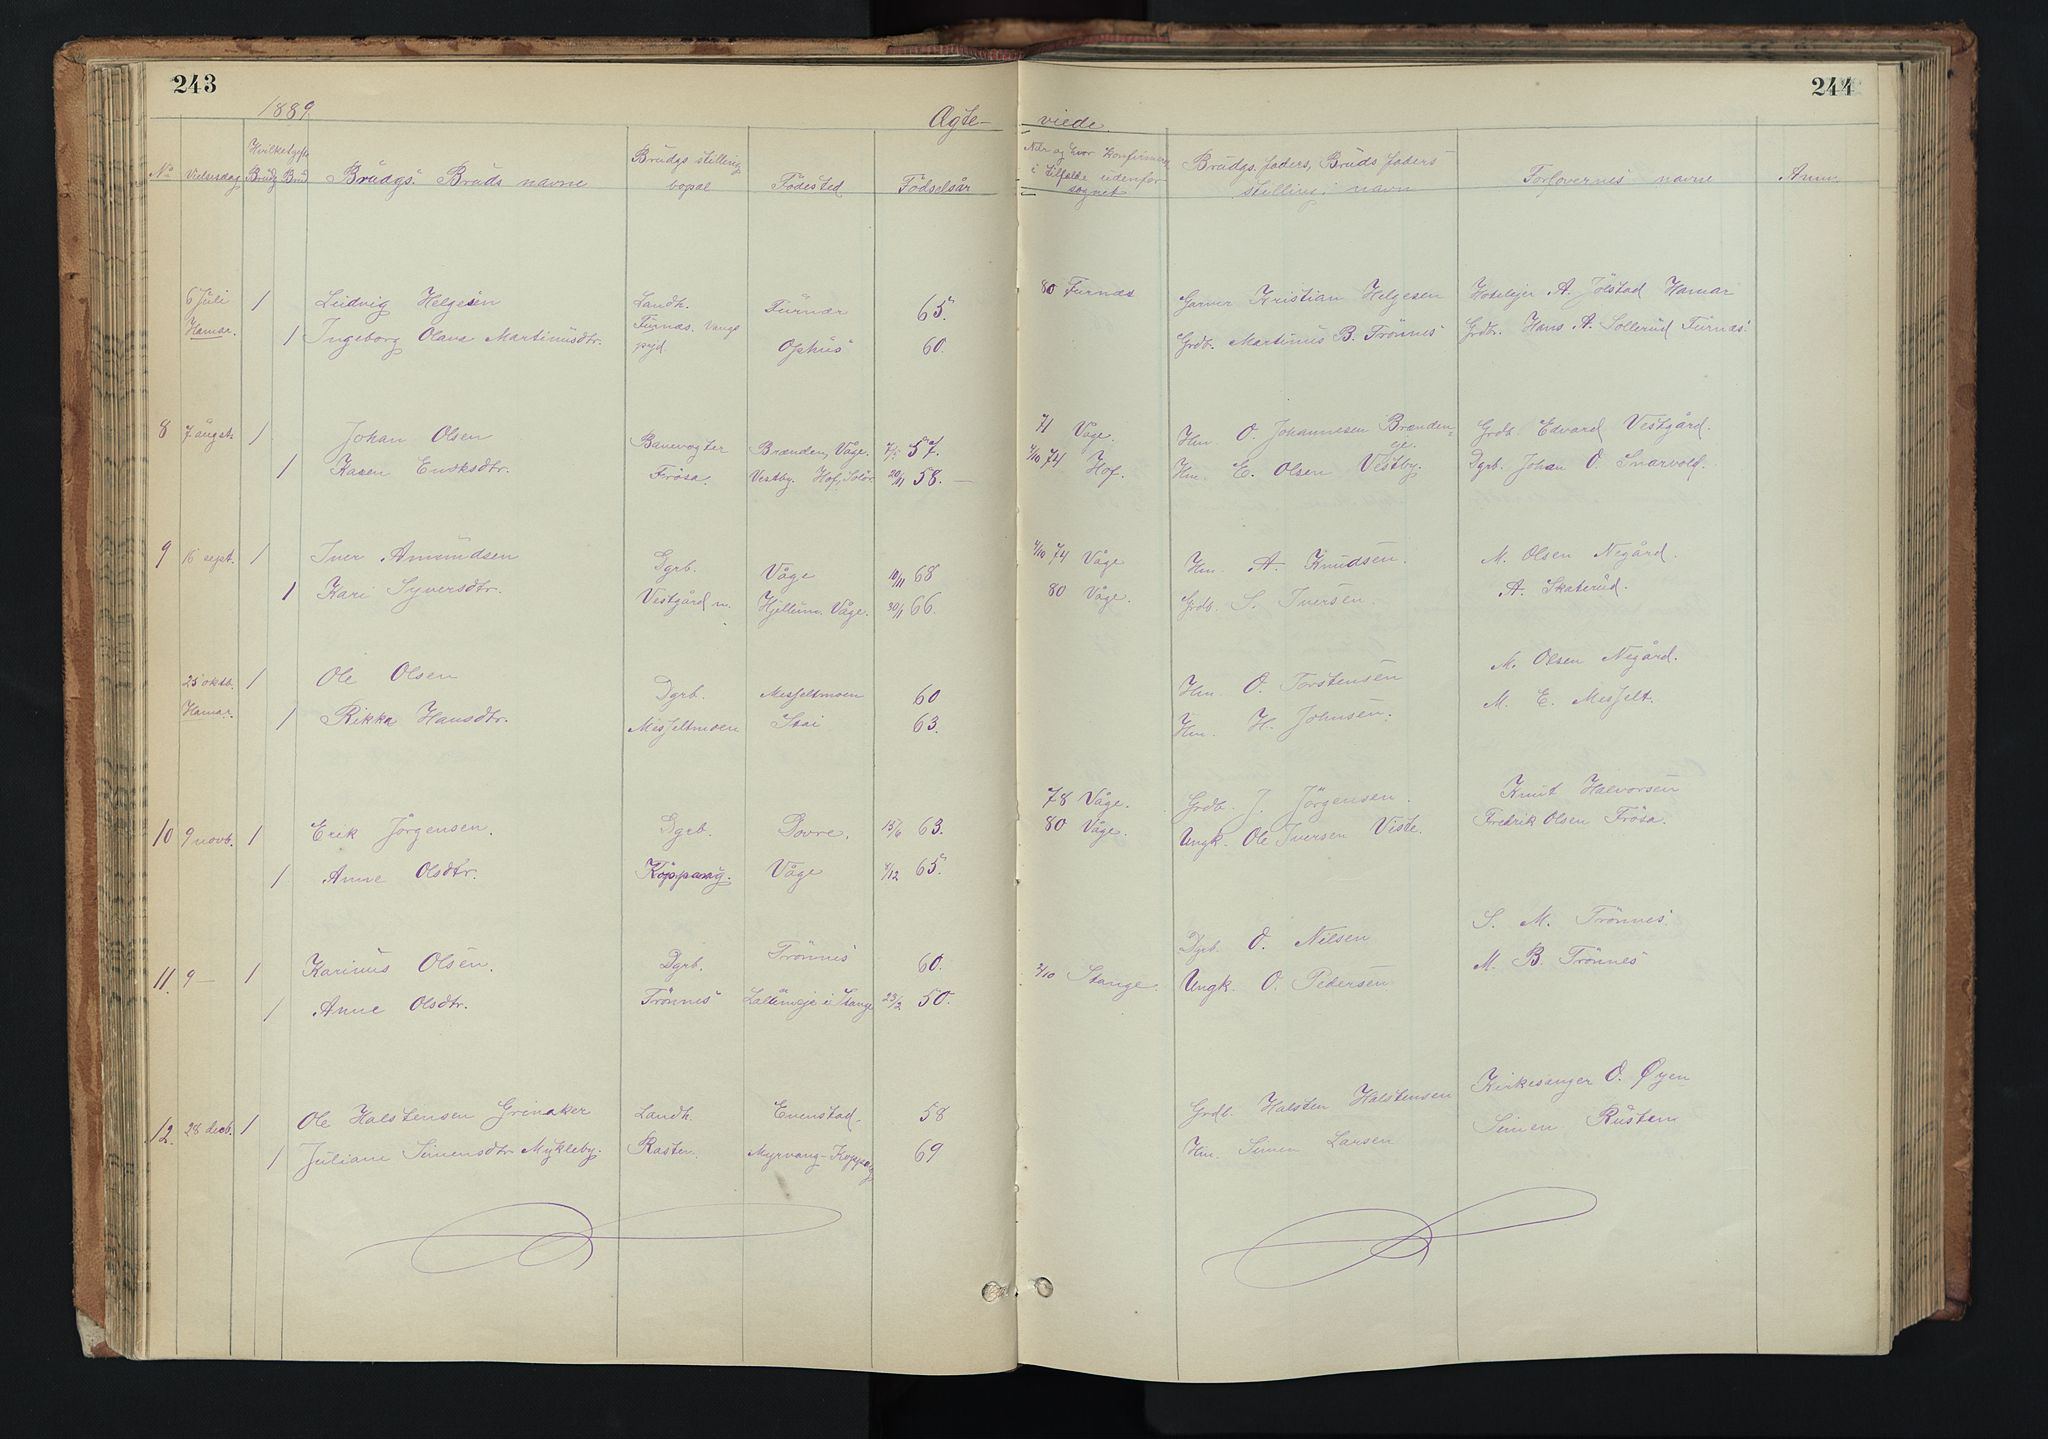 243
244
1889.
Ægte-
viede.
No
Vielsesdag
Hvilket gifte
Brudg Brud
Brudgs. Bruds navne
Brudgs stilling
bopæl
Fødested
Fødselsår
Når og hvor konfirmeret
i tilfælde udenfor
sognet
Brudgs. faders, Bruds faders
stilling i navn
Forlovernes navne
Anm.
6 Juli 1 Ludvig Helgesen Landh. Furnæs 65. 80 Furnæs Garver Kristian Helgesen Hotelejer A. Jölstad Hamar
Hamar. 1 Ingeborg Olava Martinusdtr. Furnæs. Vangs pgjd. Ophus 60. Grdb. Martinus B. Trönnes Grdbr. Hans A. Sollerud Furnæs.
8 7 august. 1 Johan Olsen Banevogter Brænden, Våge. 4/5 57. 71 Våge. Hm. O. Johannesen Brænden-eje. Grdb. Edvard Vestgård.
1 Karen Eriksdtr. Frösa. Vestby. Hof, Solör 20/11 58. 4/10 74 Hof. Hm. E. Olsen Vestby. Dgrb. Johan O. Snarvold.
9 16 sept. 1 Iver Amundsen Dgrb. Våge 10/11 68 4/10 74 Våge Hm. A. Knudsen. M. Olsen Negård.
1 Kari Syversdtr. Vestgård n. Hjellum. Våge. 30/1 66. 80 Våge. Grdb. S. Iversen. A. Skaterud.
25 oktb. 1 Ole Olsen Dgrb. Messeltmoen 60 Hm. O. Torstensen M. Olsen Negård.
Hamar. 1 Rikka Hansdtr. Messeltmoen Stai 63. Hm. H. Johnsen. M. E. Messelt.
10 9 novb. 1 Erik Jörgensen. Dgrb. Dovre. 15/6 63. 78 Våge. Grdb. J. Jörgensen. Knut Halvorsen
1 Anne Olsdtr. Koppang. Våge 4/12 65. 80 Våge. Ungk. Ole Iversen Viste. Fredrik Olsen Frösa.
11. 9 — 1 Karinus Olsen. Dgrb. Trönnes 60. Dgrb. O. Nilsen S. M. Trönnes
1 Anne Olsdtr. Trönnes i Stange 23/2 50. 2/10 Stange. Ungk. O. Pedersen M. B. Trönnes
12. 28 decb. 1 Ole Halstensen Grinaker Landh. Evenstad 58 Grdb. Halsten Halstensen Kirkesanger O. Øyen
1 Juliane Simensdtr. Mykleby. Rasten. Myrvang-Koppang 69 Hm. Simen Larsen Simen Rusten